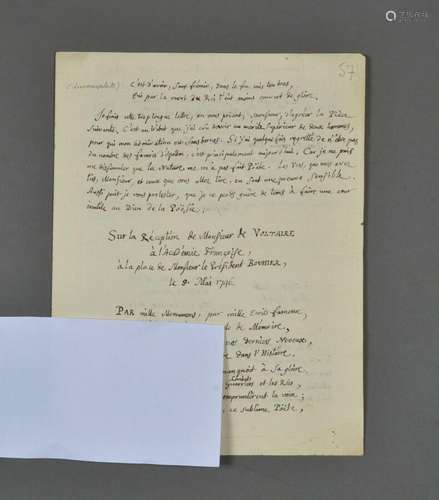 57
C'est d'avoir, sans frémir, dans le feu mis ton bras,
Qui par la mort du Roi t'eût moins couvert de gloire.
Je finis cette trop longue lettre, en vous priant, Monsieur, d'agréer la Pièce
suivante. C'est un tribut que j'ai crû devoir au mérite supérieur de deux hommes,
pour qui mon admiration est sans bornes. Si j'ai quelque fois regretté de n'être pas
du nombre des favoris d'Apollon, c'est principalement aujourd'hui. Car je ne puis
me dissimuler que la Nature ne m'a pas fait Poëte. Les Vers, que vous avez
lûs, Monsieur, et ceux que vous allez lire, en sont une preuve sensible.
Aussi puis-je vous protester, que je ne perds guère de tems à faire une cour
au Dieu de la Poësie.
Sur la Réception de Monsieur de VOLTAIRE
à l'Académie Françoise,
à la place de Monsieur le Président BOUHIER,
le 9. Mai 1746.
PAR mille Monumens, par mille Ecrits fameux
de Mémoire,
nos derniers Neveux
dans l'Histoire
manquoit à sa gloire
Combats
Guerriers et les Rois
la voix;
ce sublime Poëte,